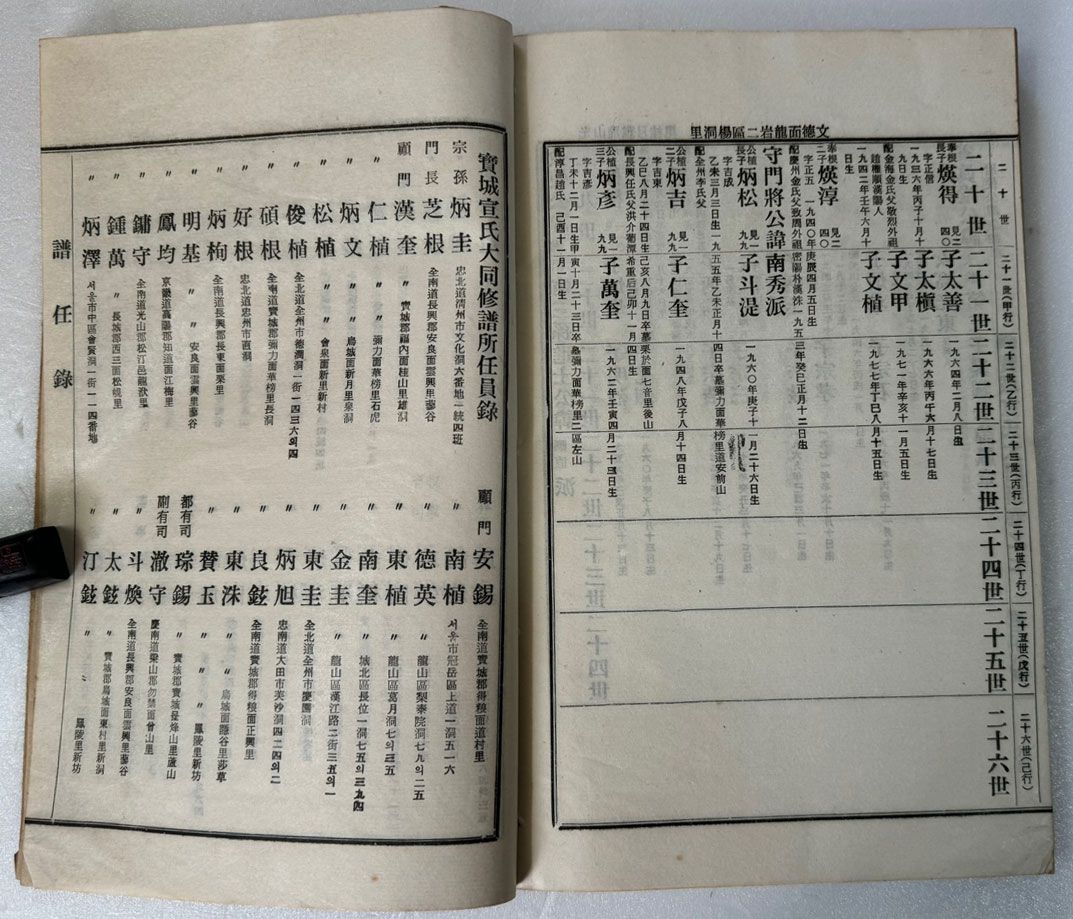 文德面龍岩二區楊洞里
二十世
二十一世(甲行)
二十二世(乙行)
二十三世(丙行)
二十四世(丁行)
二十五世(戊行)
二十六世(己行)
二十世
二十一世
二十二世
二十三世
二十四世
二十五世
二十六世
奉根長子 煐得 見二四〇
字正信
一九三六年丙子十月十九日生
配金海金氏父敬烈外祖趙雁順漢陽人
一九四二年壬午六月十日生
子太善
一九六四年二月八日生
子太槇
一九六六年丙午六月十七日生
子文甲
一九七一年辛亥十一月五日生
子文植
一九七七年丁巳八月十五日生
奉根二子 煐淳 見二四〇
字正五 一九四〇年庚辰四月五日生
配慶州金氏父致周外祖密陽朴漢洙一九五三年癸巳正月十二日生
守門將公諱南秀派
公植長子 炳松 見一九九
字吉成
乙未三月三日生一九五五年乙未正月十四日卒墓彌力面華榜里道安前山
配全州李氏父
子斗湜
一九六〇年庚子十一月二十六日生
公植二子 炳吉 見一九九
字吉東
乙巳八月二十四日生己亥八月九日卒墓栗於面七音里後山
配長興任氏父洪介葡潭希重后己卯十一月四日生
子仁奎
一九四八年戊子八月十四日生
公植三子 炳彥 見一九九
字吉彥
丁未十二月一日生甲寅十月二十三日卒墓彌力面華榜里二區左山
配淳昌趙氏 己酉十一月一日生
子萬奎
一九六二年壬寅四月二十三日生
寶城宣氏大同修譜所任員錄
宗孫 炳圭 忠北道淸州市文化洞六番地一統四班
門長 芝根 全南道長興郡安良面雲興里蓼谷
顧門 漢奎 〃 寶城郡福內面桂山里雄洞
〃 仁植 〃 〃 彌力面華榜里石虎
〃 炳文 〃 〃 鳥城面新月里泉洞
〃 松植 〃 〃 會泉面新里新村
〃 俊植 全北道全州市德津洞一街一四三六의四
〃 碩根 全南道寶城郡彌力面華榜里長洞
〃 好根 忠北道忠州市直洞
〃 炳栒 全南道長興郡長東面栗里
〃 明基 〃 〃 安良面雲興里蓼谷
〃 鳳均 京畿道高陽郡知道面江梅里
〃 鏞守 全南道光山郡松汀邑龍洑里
〃 鍾萬 〃 長城郡西三面松峴里
〃 炳澤 서울市中區會賢洞一街一一四番地
顧門 安錫 全南道寶城郡得粮面道村里
〃 南植 서울市冠岳區上道一洞五一六
〃 德英 〃 龍山區梨泰院洞七九의二五
〃 東植 〃 龍山區葛月洞七의三五
〃 南奎 〃 城北區長位一洞七五의三九四
〃 金圭 〃 龍山區漢江路二街三五의一
〃 東圭 全北道全州市慶園洞
〃 炳旭 忠南道大田市芙沙洞四二四의二
〃 良鉉 全南道寶城郡得粮面正興里
〃 東洙 〃 〃 鳥城面隱谷里莎草
〃 賛玉 〃 〃 〃 鳳陵里新坊
都有司 琮錫 〃 寶城郡寶城邑烽山里蘆山
副有司 澈守 慶南道梁山郡勿禁面曾山里
〃 斗煥 全南道長興郡安良面雲興里蓼谷
〃 太鉉 〃 寶城郡鳥城面東村里新洞
〃 汀鉉 〃 〃 〃 鳳陵里新坊
譜任錄